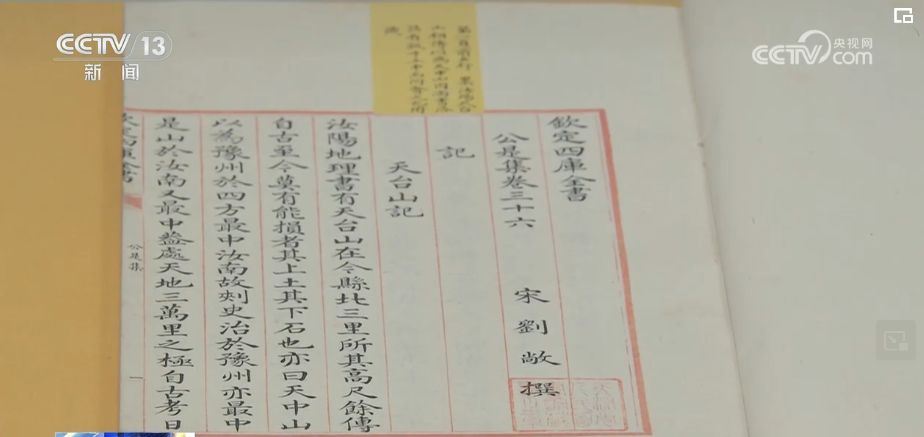 CCTV 13
新闻
央视网
CCTV.com
欽定四庫全書
公是集卷三十六
宋劉敞撰
記
天台山記
汝陽地理書有天台山在今縣北三里所其高尺餘傳
自古至今莫有能損者其上土其下石也亦曰天中山
以為豫州於四方最中汝南故刺史治於豫州亦最中
是山於汝南又最中葢處天地三萬里之極自古考日
公是集
一